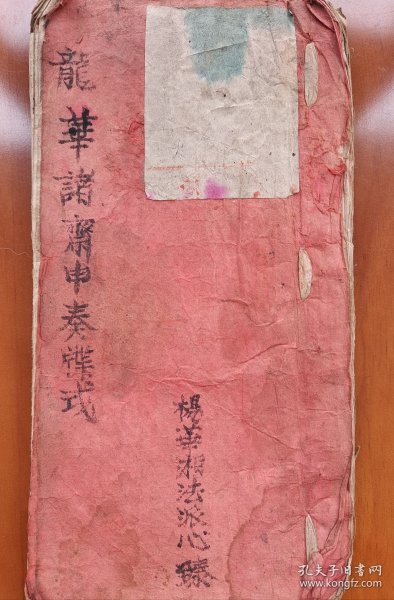 龍華諸齋申奏牒式
楊華相法派心臻
孔夫子旧书网
www.kongfz.com